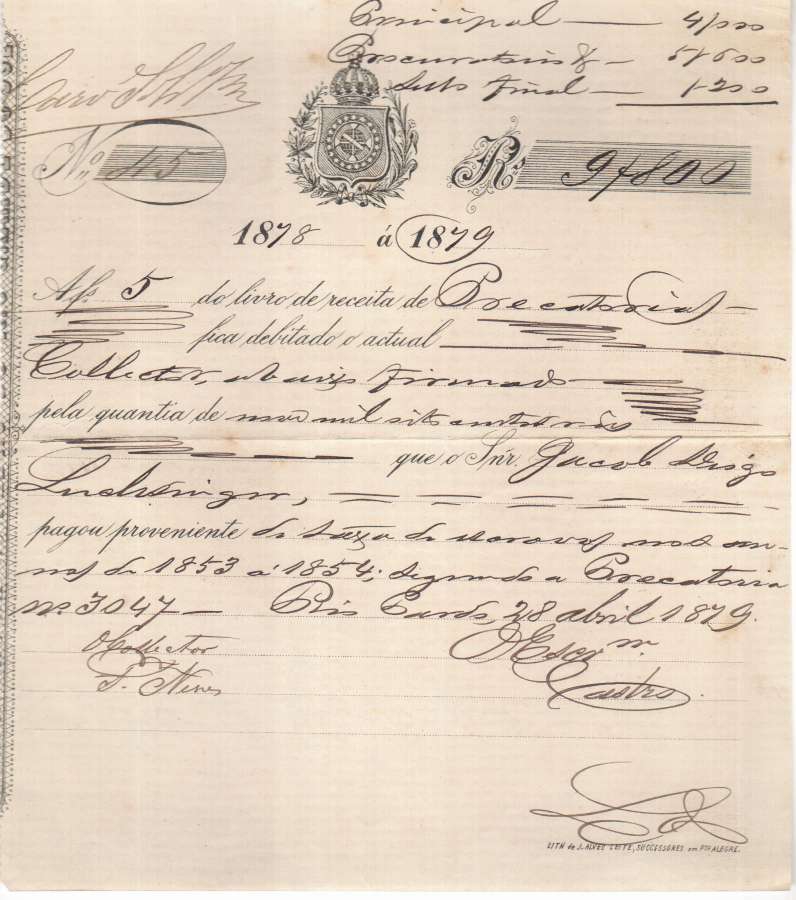 Principal — 4$000
Procuratorio — 5$600
Sello final — $200
No. 45
Rs 9$800
1878 á 1879
Afs. 5 do livro de receita de Precatorias
fica debitado o actual
Collector, abaixo firmado
pela quantia de nove mil oito centos réis
que o Snr. Jacob
pagou proveniente de taxa de escravos nos an-
nos de 1853 á 1854; segundo a Precatoria
no. 3047 — Rio Pardo, 28 abril 1879.
O Collector
O Escrm.
P. Neves
Castro.
LITH de J. ALVES LEITE, SUCCESSORES em PTO ALEGRE.